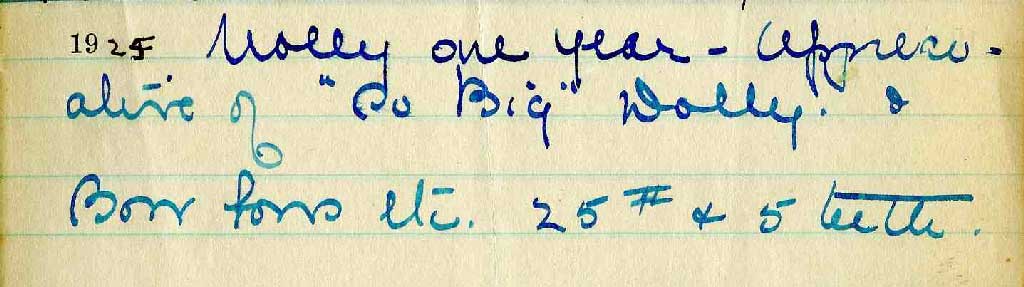 1925 Molly one year - Appreci-
ative of "So Big" Dolly. &
Bow wows etc. 25 # & 5 teeth.